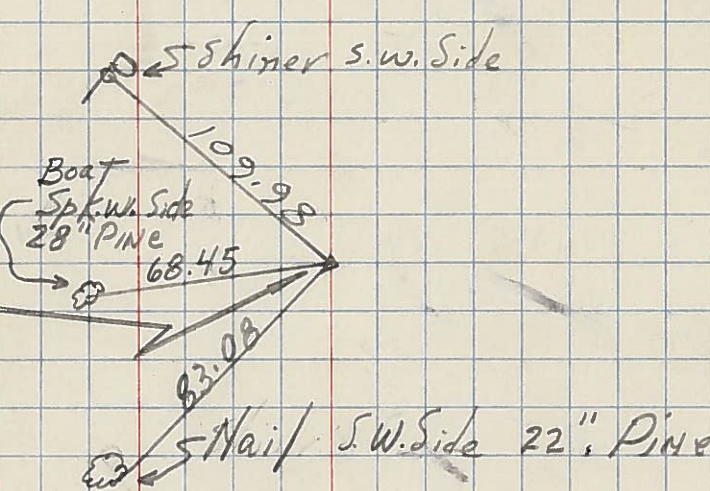 Shiner S.W. Side
109.98
Boat
Spk. W. Side
28" PINE
68.45
83.08
Nail S.W. Side 22" PINE